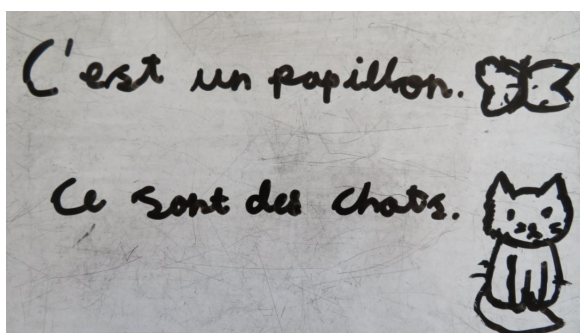 C'est un papillon.
Ce sont des chats.